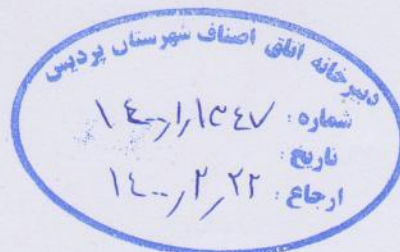 دبیرخانه اتاق اصناف شهرستان پردیس
شماره: ۱۴۰۰/۱/۱۳۴۷
تاریخ:
ارجاع: ۱۴۰۰/۲/۲۲